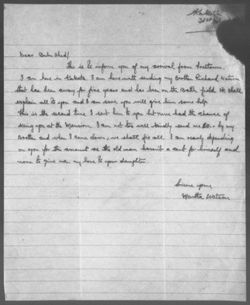 Dear Bula Shah!
This is to inform you of my arrival from
I am here in I am here with sending my Brother Richard Watson
that has been away for five years and has been on the Battle field. He shall
explain all to you and I am sure you will give him some help.
This is the second time I sent to you but never had the chance of
seeing you at the Mansion. I am not too well kindly send me by my
Brother and when I come down, we shall fix all. I am mainly depending
on you for the amount as the old man hasn't a cent for himself and
none to give me. my love to your daughter.
Sincere yours,
Martha Watson